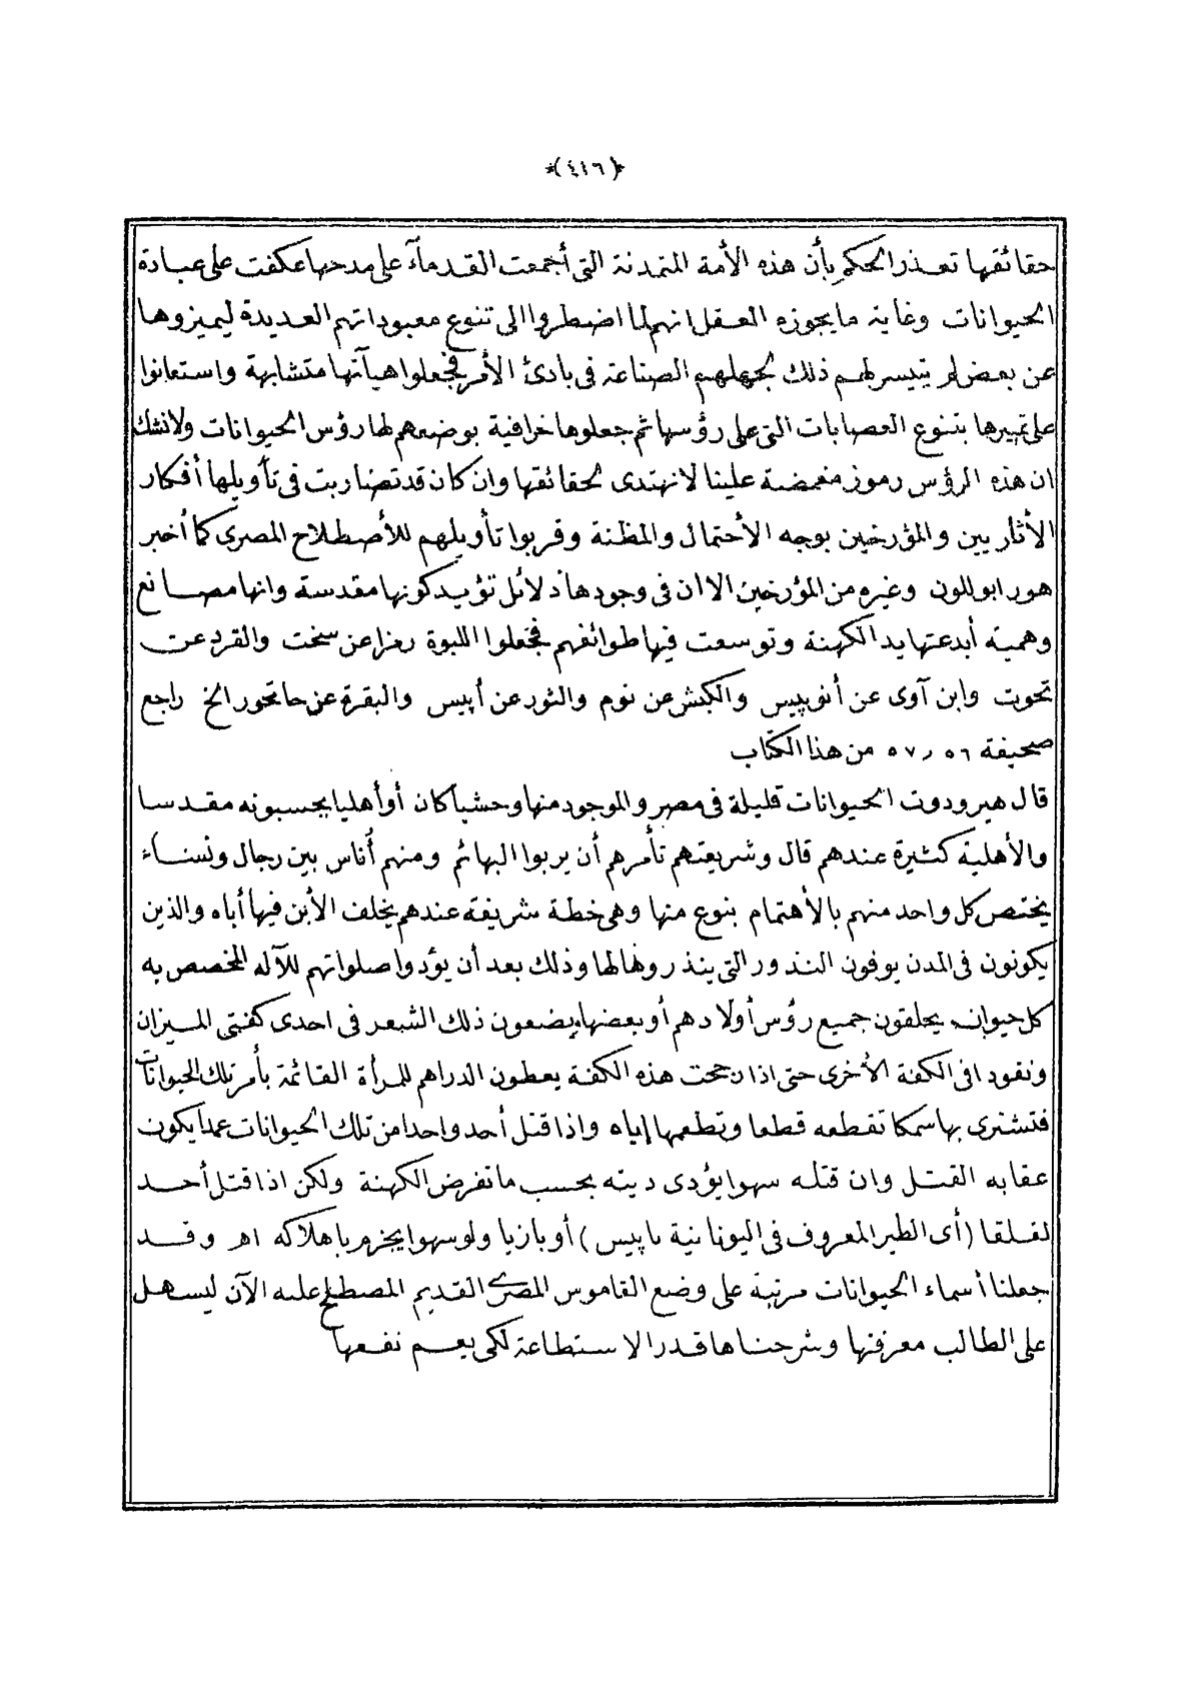 *(٤١٦)*
حقائقها تعذر الحكم بأن هذه الأمة المتمدنة التى أجمعت القدمآء على مدحها عكفت على عبادة
الحيوانات وغاية ما يجوزه العقل انهم لما اضطروا الى تنوع معبوداتهم العديدة ليميزوها
عن بعض لم يتيسر لهم ذلك لجهلهم الصناعة فى بادئ الأمر فجعلوا هيآتها متشابهة واستعانوا
على تمييزها بتنوع العصابات التى على رؤسها ثم جعلوها خرافية بوضعهم لها رؤس الحيوانات ولا نشك
ان هذه الرؤس رموز مغمضة علينا لا نهتدى لحقائقها وان كان قد تضاربت فى تأويلها أفكار
الأثاريين والمؤرخين بوجه الأحتمال والمظنة وقربوا تأويلهم للأصطلاح المصرى كما أخبر
هور ابوللون وغيره من المؤرخين الا ان فى وجودها دلائل تؤيد كونها مقدسة وانها مصانع
وهمية أبدعتها يد الكهنة وتوسعت فيها طوائفهم فجعلوا اللبوة رمزا عن سخت والقرد عن
تحوت وابن آوى عن أنوپيس والكبش عن نوم والثور عن أپيس والبقرة عن حاتحور الخ راجع
صحيفة ٥٦ ر ٥٧ من هذا الكتاب
قال هيرودوت الحيوانات قليلة فى مصر والموجود منها وحشيا كان أو أهليا يحسبونه مقدسا
والأهلية كثيرة عندهم قال وشريعتهم تأمرهم أن يربوا البهائم ومنهم أناس بين رجال ونساء
يختص كل واحد منهم بالأهتمام بنوع منها وهى خطة شريفة عندهم يخلف الأبن فيها أباه والذين
يكونون فى المدن يوفون النذور التى ينذرونها لها وذلك بعد أن يؤدوا صلواتهم للآله المخصص به
كل حيوان يحلقون جميع رؤس أولادهم أو بعضها يضعون ذلك الشعر فى احدى كفتى الميزان
ونقودا فى الكفة الأخرى حتى اذا رجحت هذه الكفة يعطون الدراهم للمرأة القائمة بأمر تلك الحيوانات
فتشترى بها سمكا تقطعه قطعا وتطعمها إياه واذا قتل أحد واحدا من تلك الحيوانات عمدا يكون
عقابه القتل وان قتله سهوا يؤدى ديته بحسب ما تفرض الكهنة ولكن اذا قتل أحد
لقلقا (أى الطير المعروف فى اليونانية باپيس) أو بازيا ولو سهوا يجزم باهلاكه اه وقد
جعلنا أسماء الحيوانات مرتبة على وضع القاموس المصرى القديم المصطلح عليه الآن ليسهل
على الطالب معرفتها وشرحناها قدر الاستطاعة لكى يعم نفعها